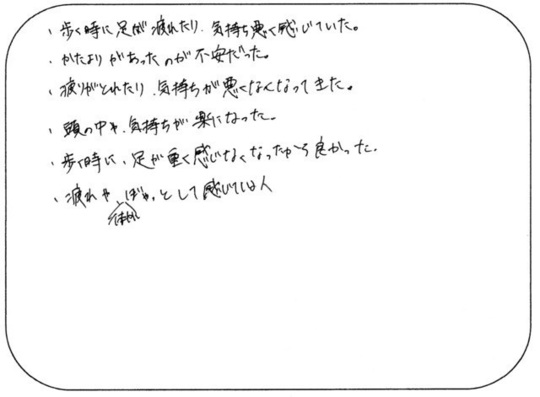 ・歩く時に足が疲れたり、気持ち悪く感じていた。
・かたよりがあったのが不安だった。
・疲りがとれたり、気持ちが悪くなくなってきた。
・頭の中や、気持ちが楽になった。
・歩く時に、足が重く感じなくなったから良かった。
・疲れやぼやっとして感じている人